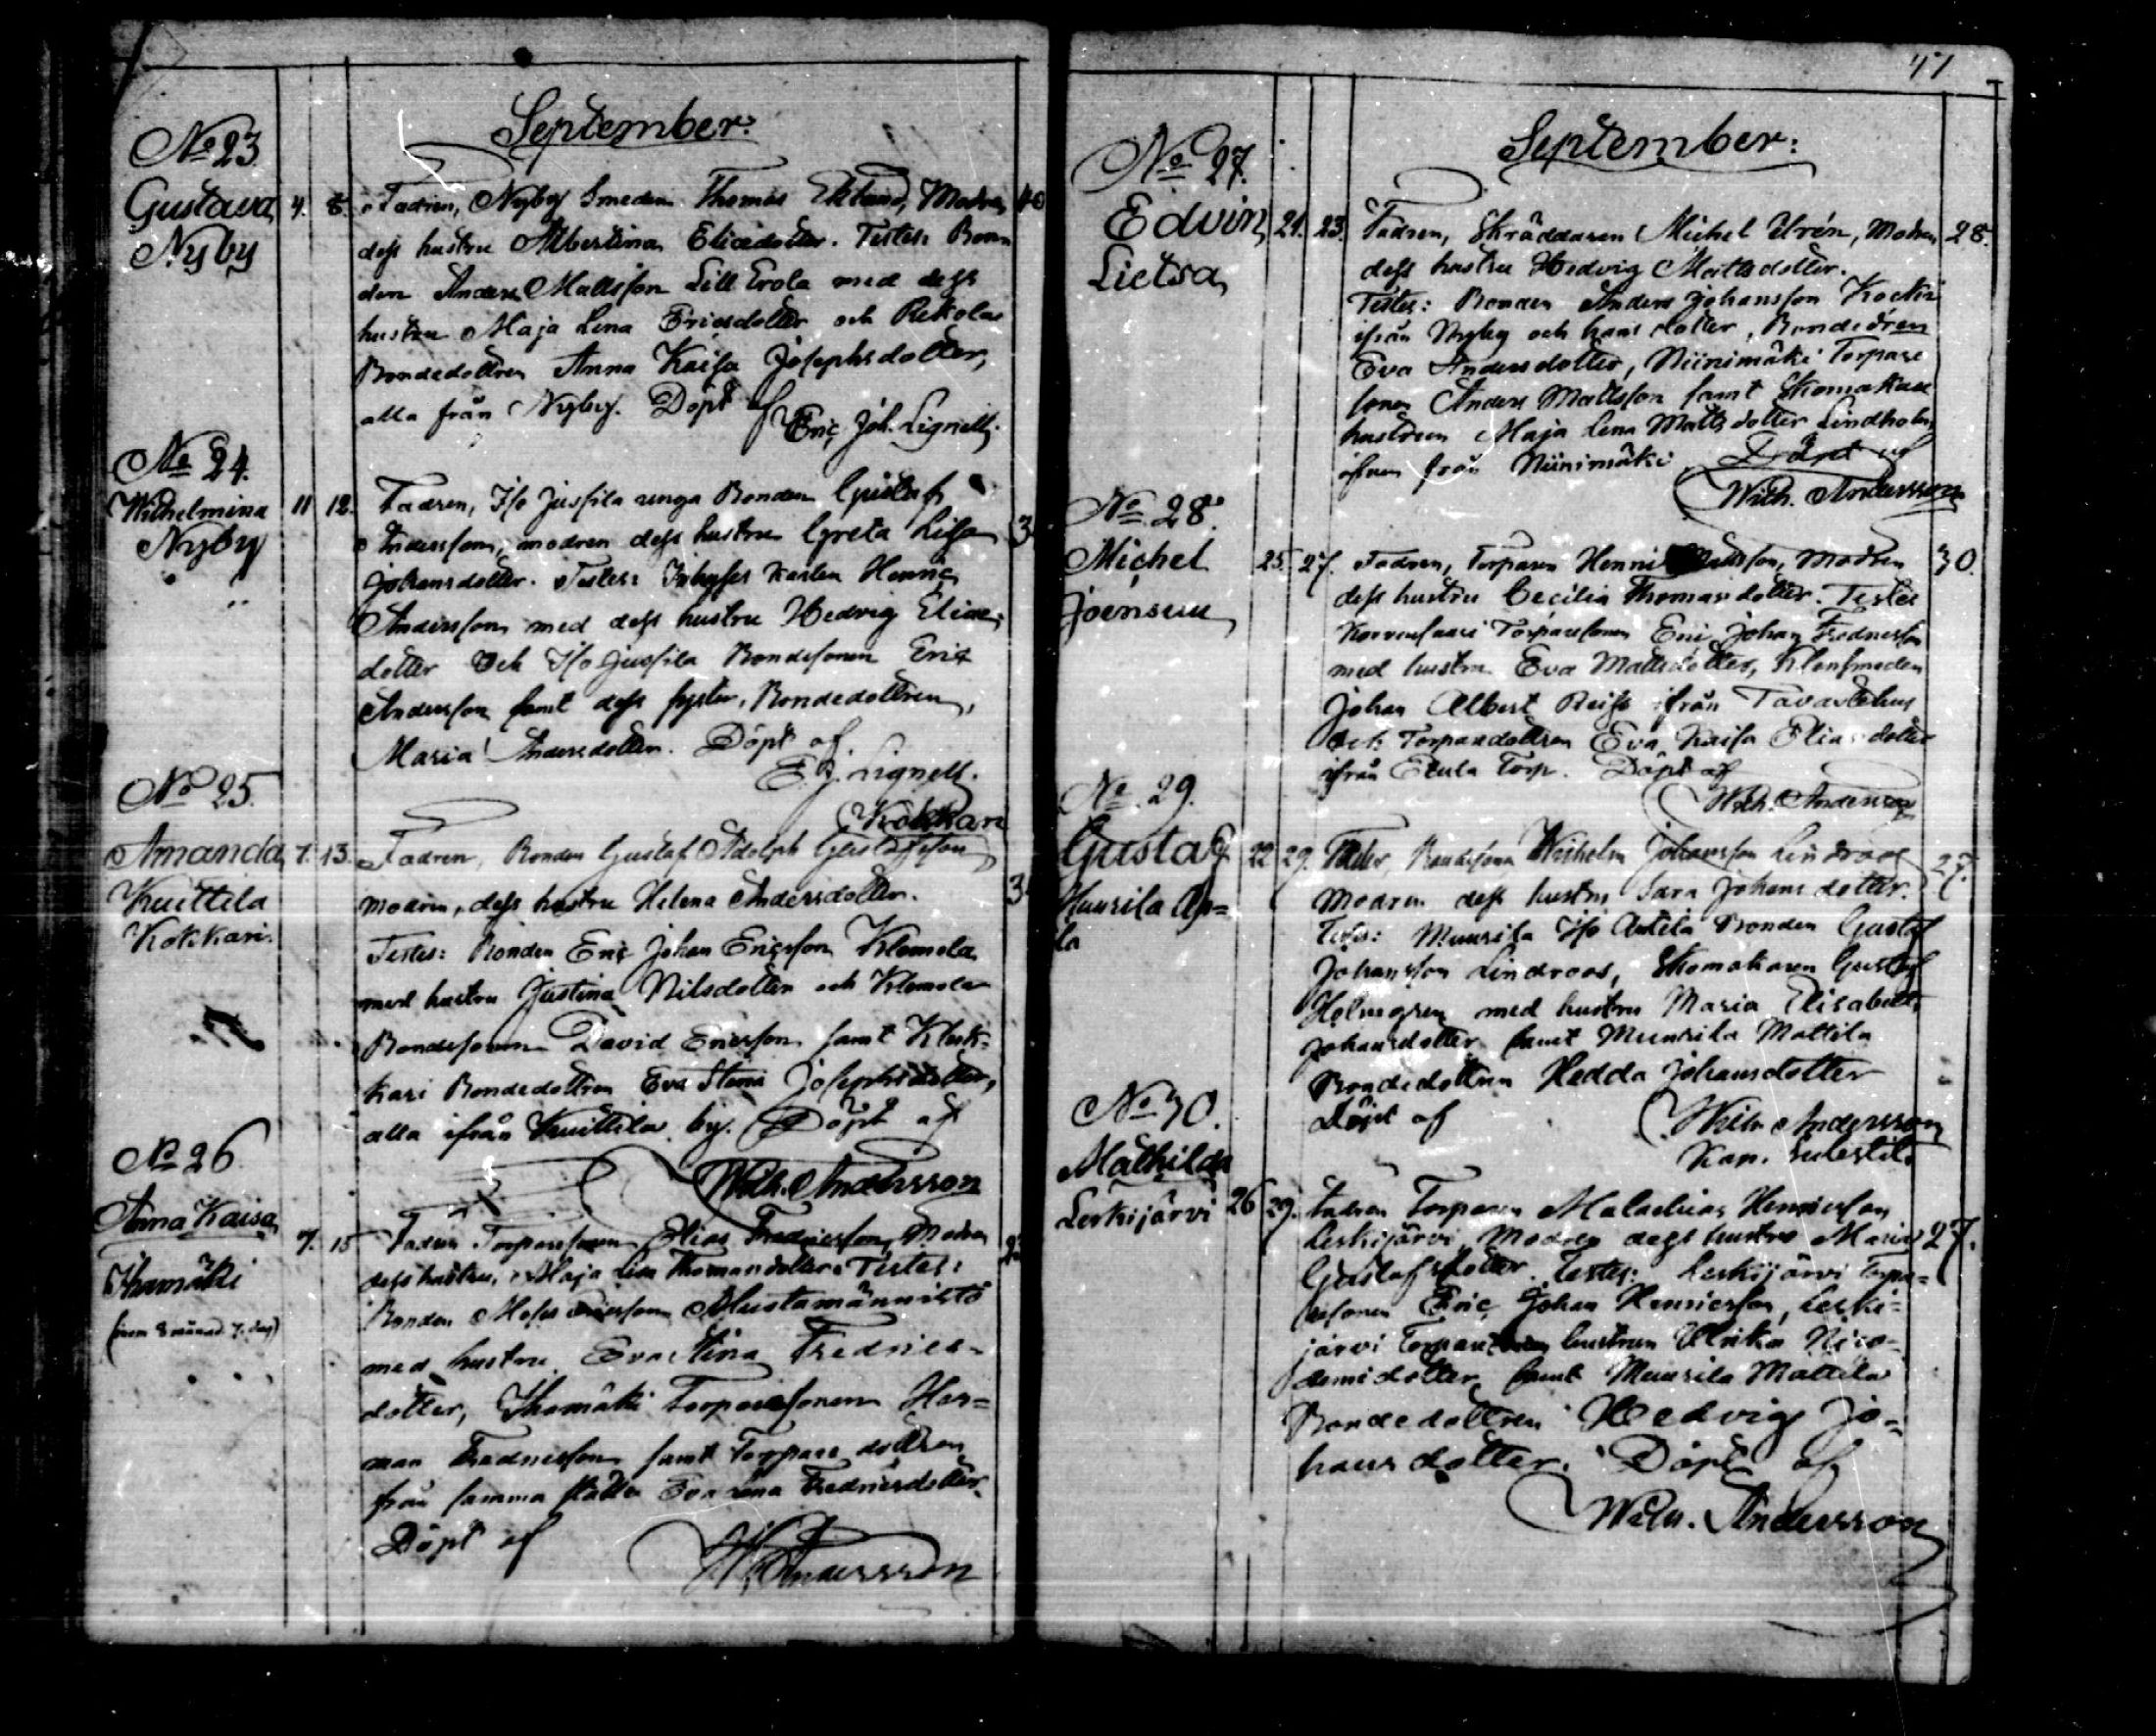 September:
No 23
Gustava 4. 8. Fadren, Nyby Smeden Thomas Eklund, Modren 40
Nyby
dess hustru Albertina Eliædotter. Testes: Bon
den Anders Mattsson Lill Erola med dess
hustru Maja Lena Ericsdotter och Rekola
Bondedottren Anna Kaisa Josephsdotter,
alla från Nyby. Döpt af
Eric Joh. Lignell.
No 24.
Wilhelmina 11 12. Fadren, Iso Jussila unga Bonden Gustaf
Nyby
Andersson, modren dess hustru Greta Lisa 3
Johansdotter. Testes: Inhyses Karlen Henric
Andersson med dess hustru Hedvig Eliæ
dotter och Iso Jussila Bondesonen Eric
Andersson samt dess syster, Bondedottren,
Maria Andersdotter. Döpt af
E. J. Lignell.
No 25.
Kokkari
Amanda 7. 13. Fadren, Bonden Gustaf Adolph Gustafsson
Kuittila
Kokkari.
modren, dess hustru Helena Andersdotter. 3
Testes: Bonden Eric Johan Ericsson Klemola
med hustru Justina Nilsdotter och Klemola
Bondesonen David Ericsson samt Kluk-
kari Bondedottren Eva Stina Josephsdotter,
alla ifrån Kuittila by. Döpt af
Wilh. Andersson
No 26
Anna Kaisa 7. 15 Fadren Torparesonen Elias Fredricsson, Modren
Ihamäki
(inom 8 månad. 7. dag)
dess hustru, Maja Lisa Thomasdotter. Testes:
Bonden Moses Ericsson Mustamännistö
med hustru Eva Stina Fredrics-
dotter, Ihamäki Torparesonen Her-
man Fredricsson samt Torparedottren
från samma ställe Eva Lena Fredricsdotter.
Döpt af
W. Andersson
47
September:
No 27.
Edvin 21. 23. Fadren, Skräddaren Michel Urén, Modren 28.
Lietsa
dess hustru Hedvig Mattsdotter.
Testes: Bonden Anders Johansson Kocki
ifrån Nyby och hans dotter, Bondedren
Eva Andersdotter, Niinimäki Torpare
sonen Anders Mattsson samt Skomakare
hustrun Maja Lena Matts dotter Lindholm
äfven från Niinimäki. Döpt af
Wilh. Andersson
No 28.
Michel 25. 27. Fadren, Torparen Henric Mattsson, Modren 30.
Joensuu
dess hustru Cecilia Thomasdotter. Testes
Korvensaari Torparesonen Eric Johan Fredricsson
med hustru Eva Mattsdotter, Klensmeden
Johan Albert Reiss ifrån Tavastehus
och Torparedottren Eva Kaisa Eliasdotter
ifrån Torp. Döpt af
Wilh. Andersson
No 29.
Gustaf 22 29. Fader, Bondesonen Wilhelm Johansson Lindroos 27.
Muurila
Modren dess hustru Sara Johansdotter.
Testes: Muurila Iso Antila Bonden Gustaf
Johansson Lindroos, Skomakaren Gustaf
Holmgren med hustru Maria Elisabeth
Johansdotter samt Muurila Mattila
Bondedottren Hedda Johansdotter
Döpt af Wilh. Andersson
Kap.
No 30.
Mathilda
Leskijärvi 26 29. Fadren Torparen Malachias Henricsson
Leskijärvi, Modren dess hustru Maria 27.
Gustafsdotter. Testes: Leskijärvi Torpa-
resonen Eric Johan Henricsson, Leski-
järvi Torpare hustrun Ulrika Nico-
demidotter samt Muurila Mattila
Bondedottren Hedvig Jo-
hansdotter. Döpt af
Wilh. Andersson